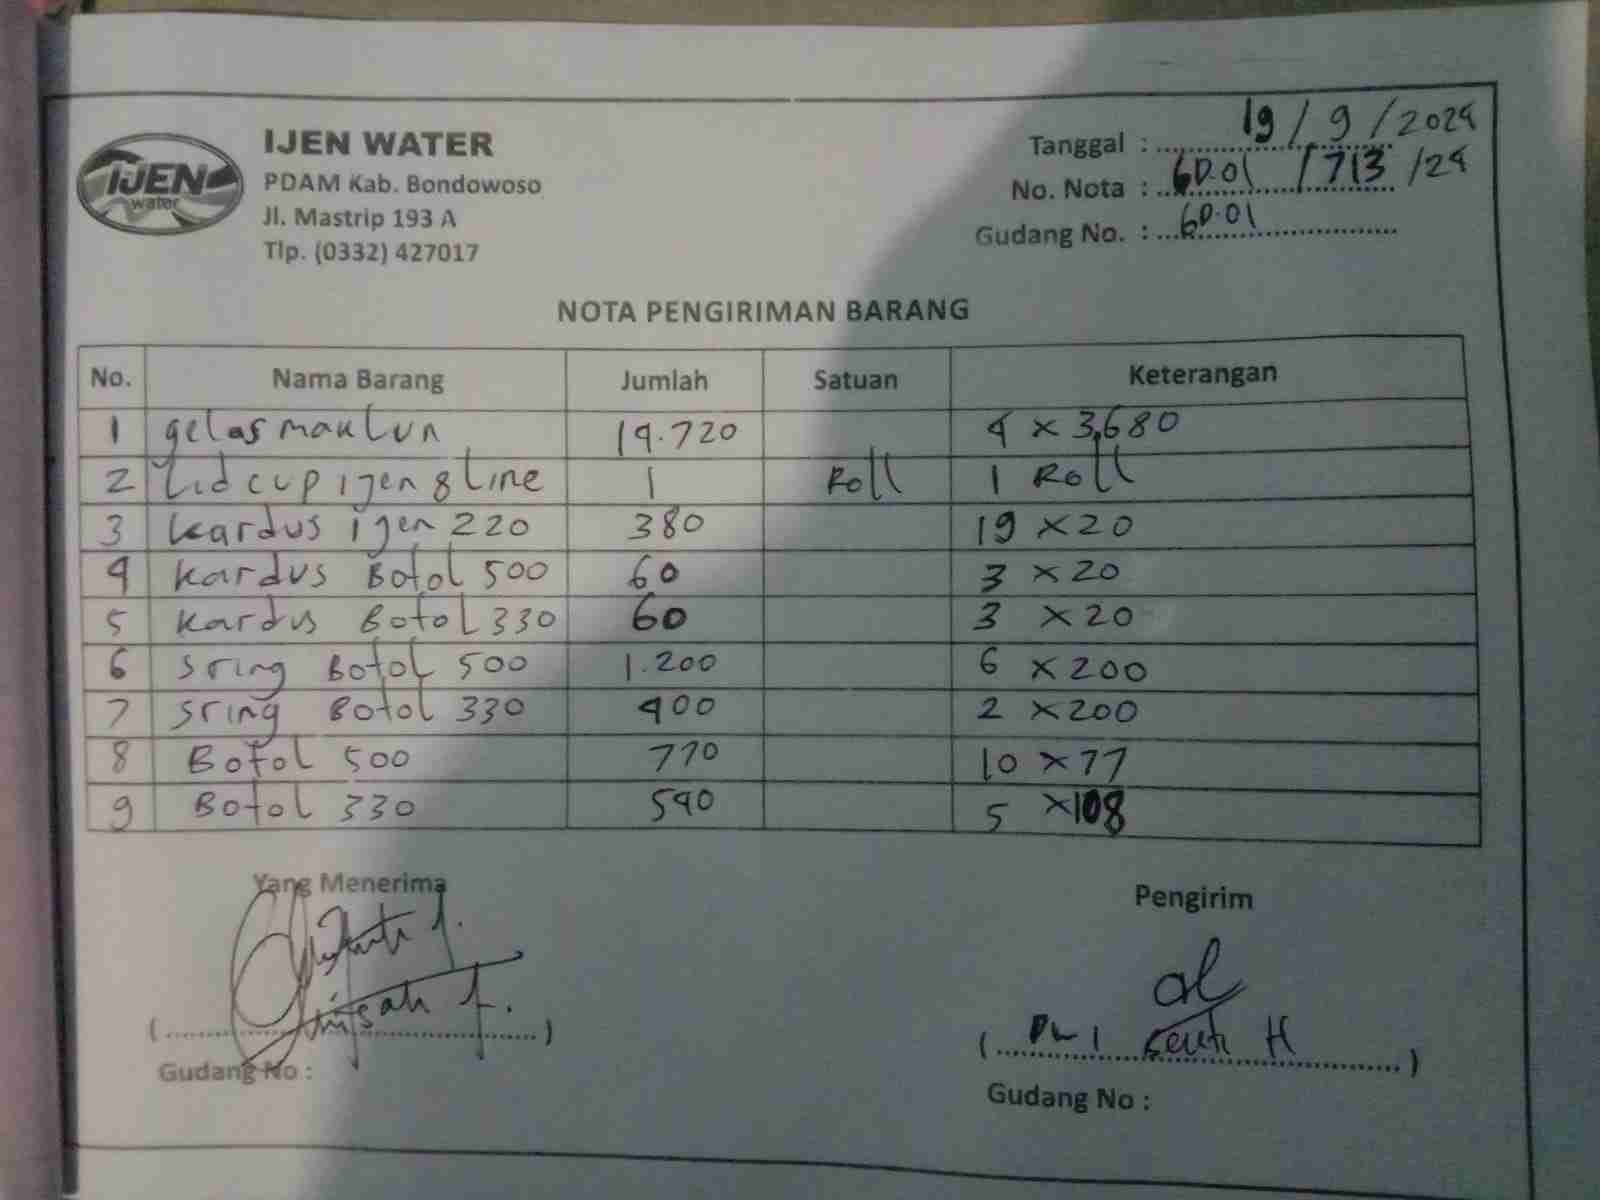 IJEN
water
IJEN WATER
PDAM Kab. Bondowoso
Jl. Mastrip 193 A
Tlp. (0332) 427017
Tanggal : 19 / 9 / 2024
No. Nota : GD.01 / 713 / 24
Gudang No. : GD.01
NOTA PENGIRIMAN BARANG
No. Nama Barang Jumlah Satuan Keterangan
1 gelas maklun 14.720 4 x 3,680
2 Lid cup ijen 8 Line 1 Roll 1 Roll
3 Kardus ijen 220 380 19 x 20
4 Kardus Botol 500 60 3 x 20
5 Kardus Botol 330 60 3 x 20
6 Sring Botol 500 1.200 6 x 200
7 Sring Botol 330 400 2 x 200
8 Botol 500 770 10 x 77
9 Botol 330 540 5 x 108
Yang Menerima
Pengirim
Gudang No :
Gudang No :